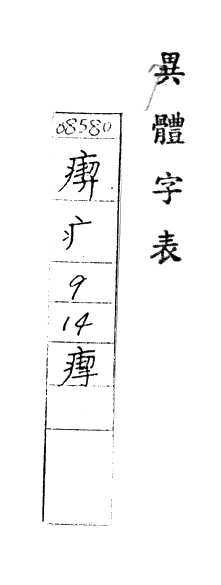 異體字表
08580
疒
9
14